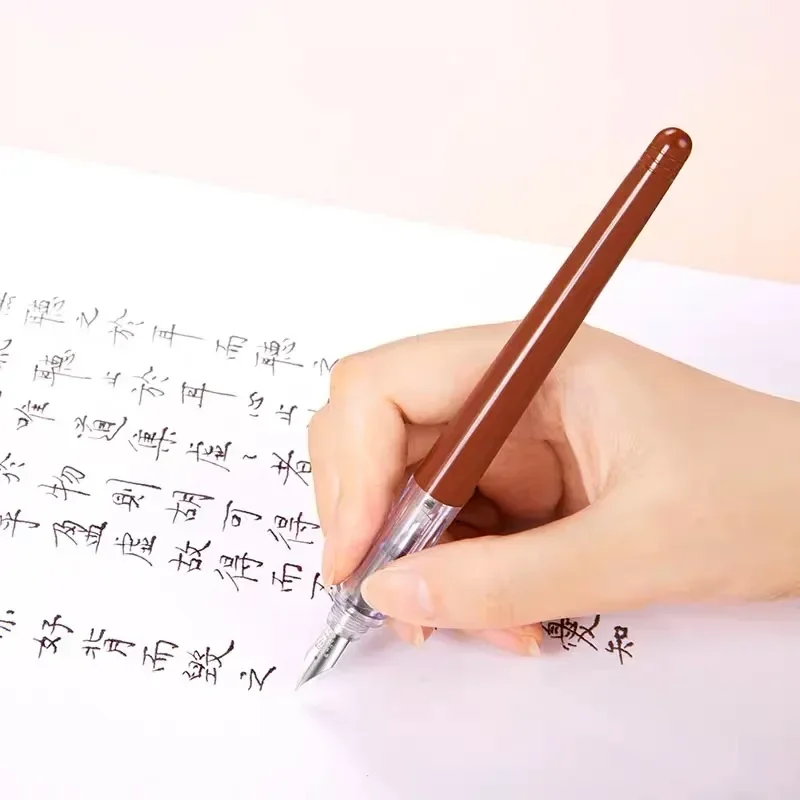 聽之於耳而聽之
聽止於耳心止
唯道集虛〻者
於物則胡可得
乎盈虛故得而不
亦好背而毀之
知